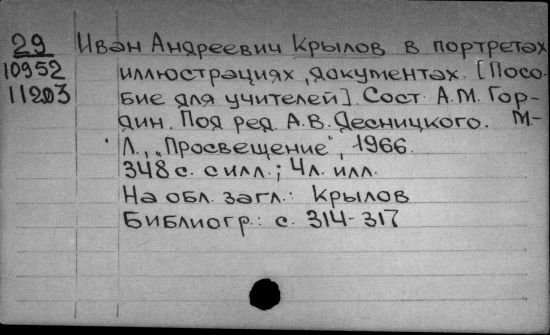 29 Иван Андреевич Крылов в портретах
10952 иллюстрациях, документах. [Посо-
11203 бие для учителей]. Сост. А.М. Гор-
дин. Под ред. А.В. Десницкого. М-
Л., „Просвещение", 1966.
348 с. с илл.; 4 л. илл.
На обл. загл.: Крылов
Библиогр.: с. 314-317